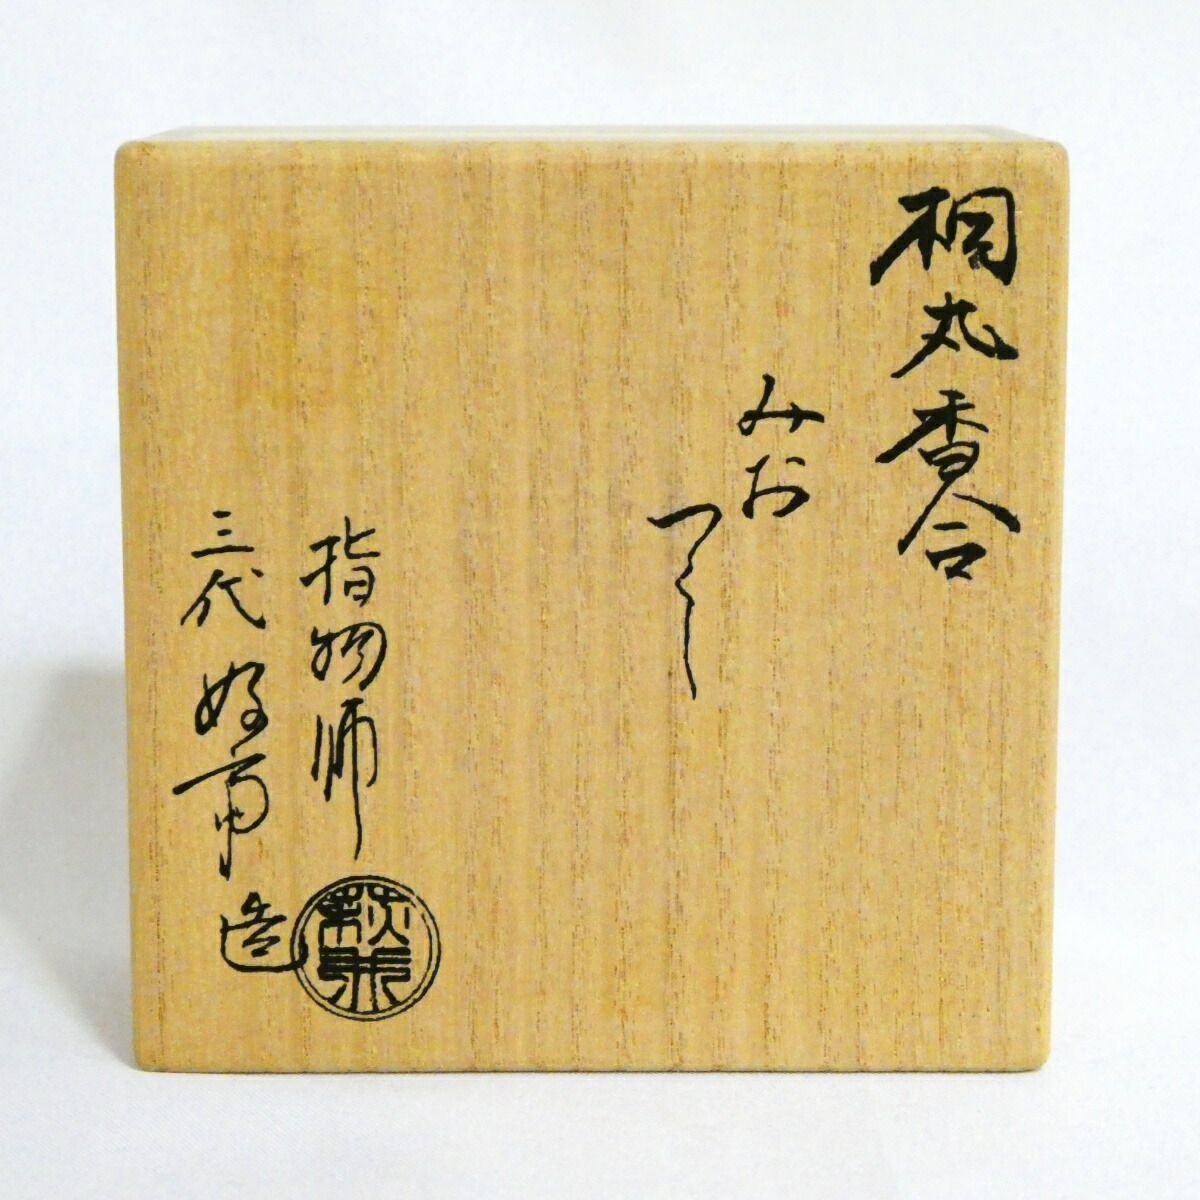 桐丸香合
みお
つくし
指物師
三代 好斎 造